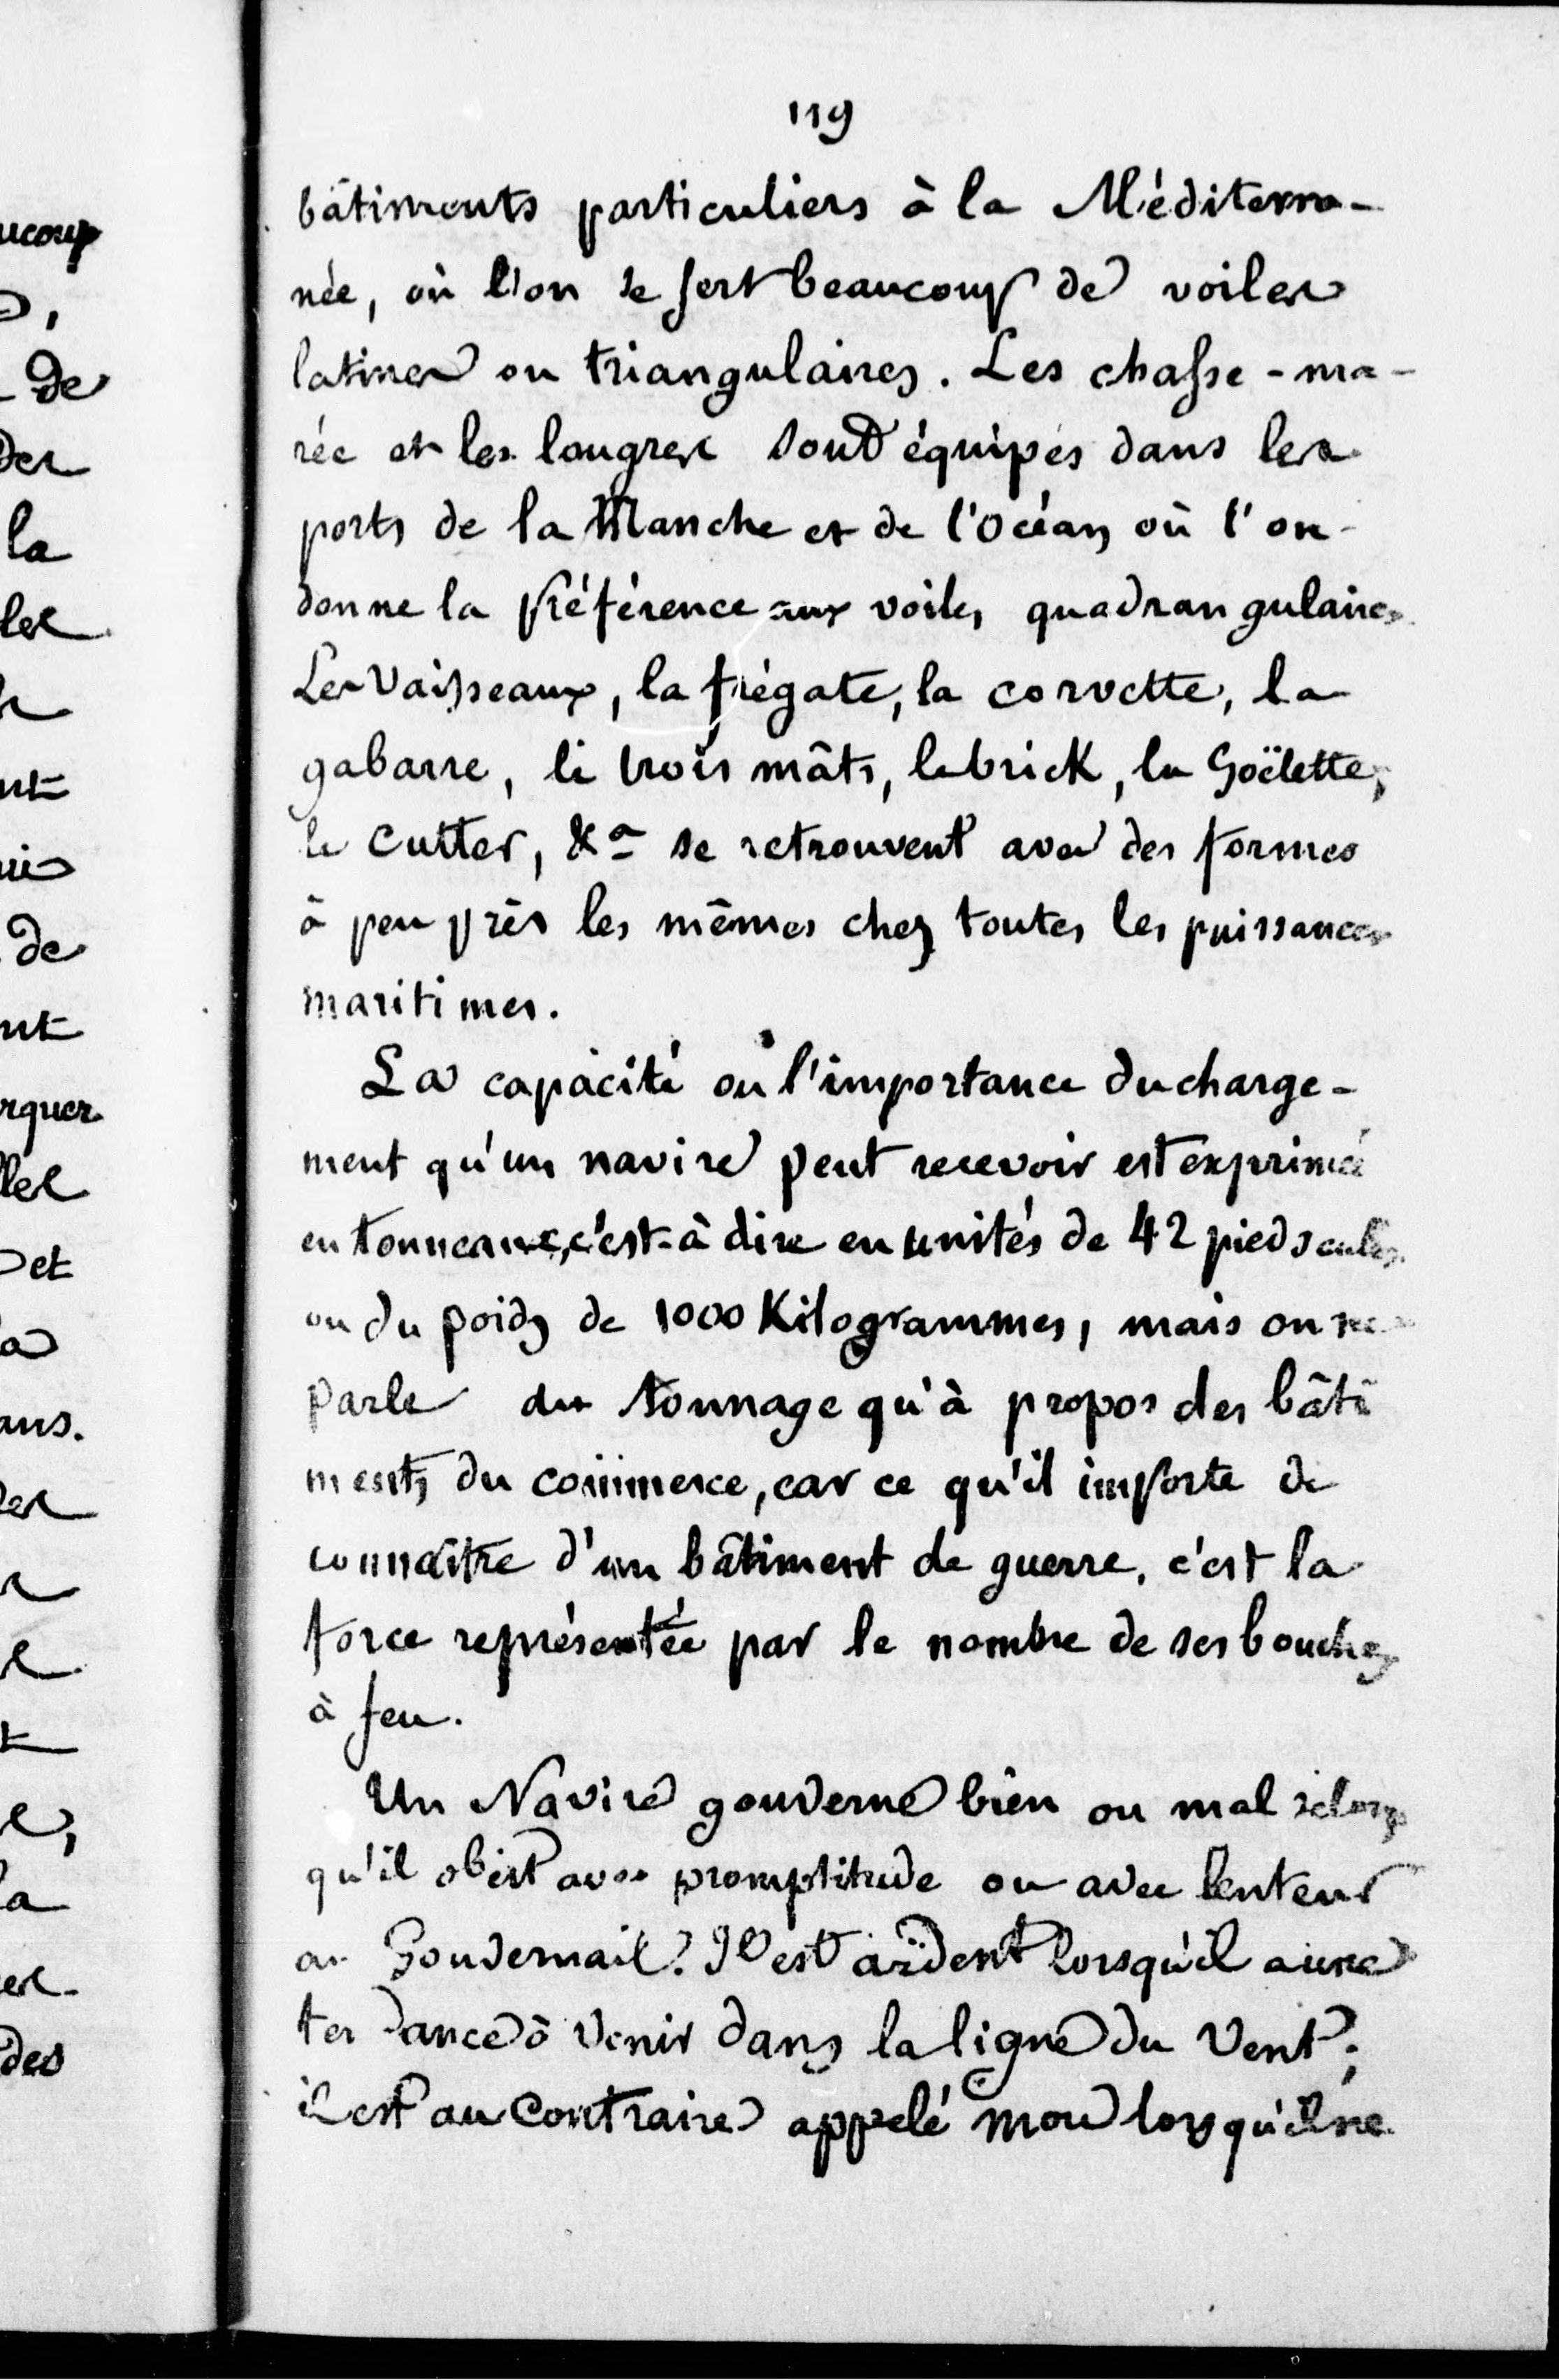 119
bâtiments particuliers à la Méditerra-
née, où l'on se sert beaucoup de voiles
latines ou triangulaires. Les chasse-ma-
rée et les lougres sont équipés dans les
ports de la Manche et de l'Océan où l'on
donne la préférence aux voiles quadrangulaires.
Les Vaisseaux, la frégate, la corvette, la
gabarre, le trois mâts, le brick, la Goëlette,
le Cutter, &a se retrouvent avec des formes
à peu près les mêmes chez toutes les puissances
maritimes.
La capacité ou l'importance du charge-
ment qu'un navire peut recevoir est exprimée
en tonneaux, c'est-à dire en unités de 42 pieds cubes
ou du poids de 1000 Kilogrammes, mais on ne
parle du tonnage qu'à propos des bâti
ments du commerce, car ce qu'il importe de
connaître d'un bâtiment de guerre, c'est la
force représentée par le nombre de ses bouches
à feu.
Un Navire gouverne bien ou mal selon
qu'il obéit avec promptitude ou avec lenteur
au Gouvernail. Il est ardent lorsqu'il a une
tendance à venir dans la ligne du Vent;
il est au Contraire appelé mou lorsqu'il ne
ucoup
de
des
la
les
nt
de
nt
rquer
lles
et
ans.
la
des